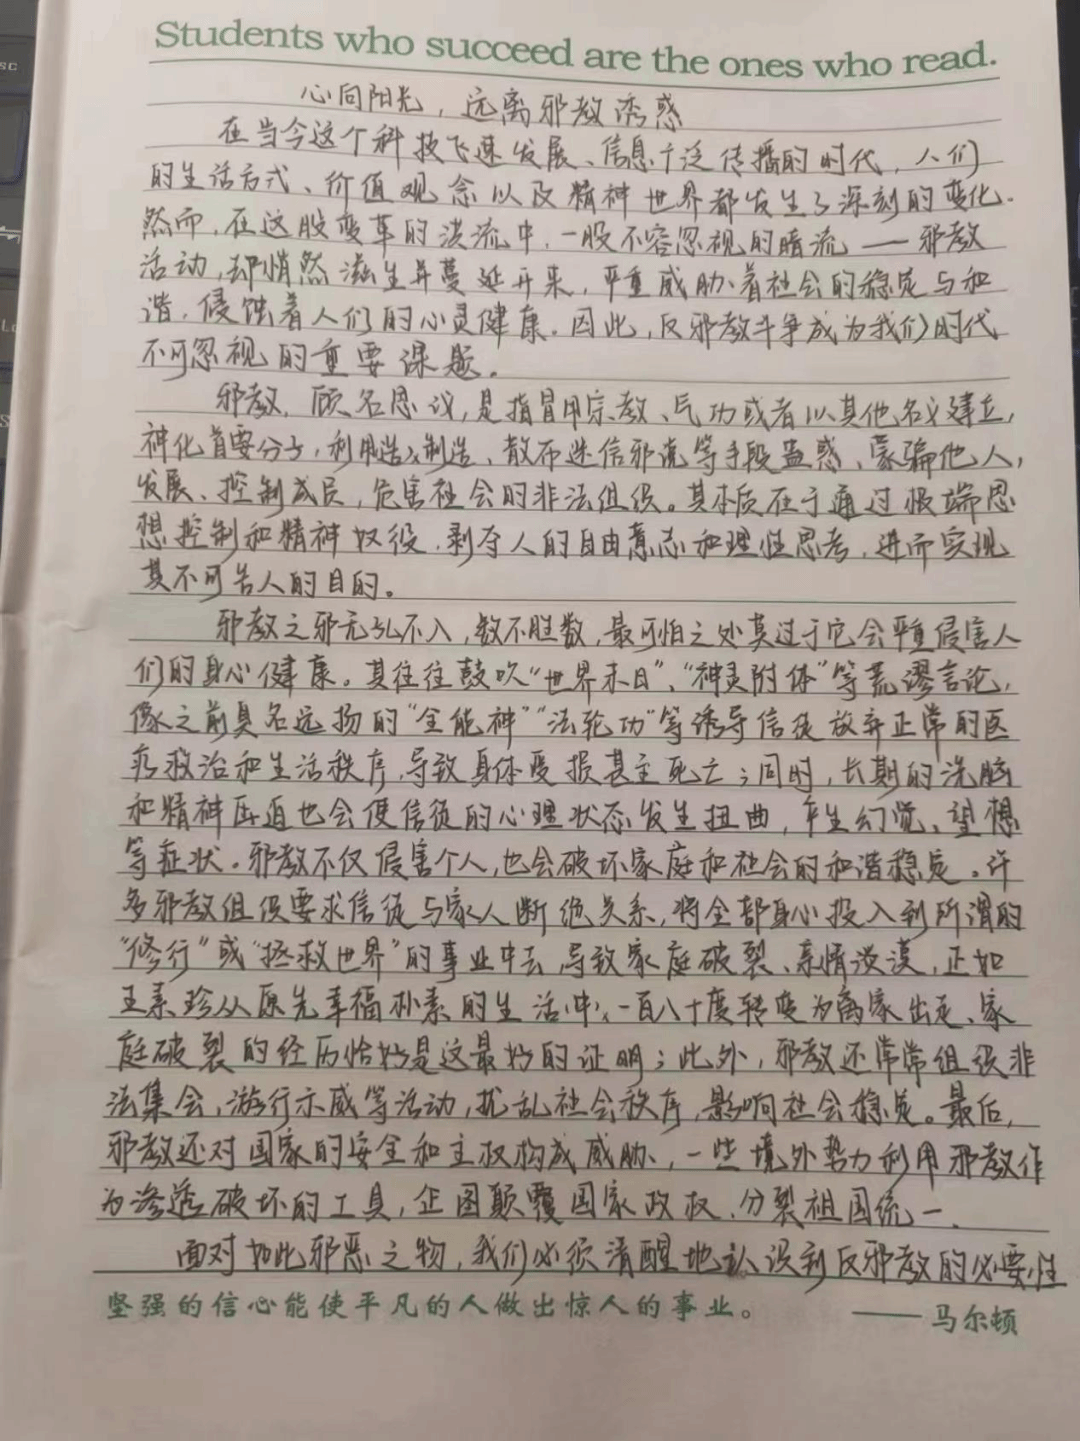 Students who succeed are the ones who read.
心向阳光，远离邪教诱惑
在当今这个科技飞速发展、信息广泛传播的时代，人们
的生活方式、价值观念以及精神世界都发生了深刻的变化.
然而，在这股变革的洪流中，一股不容忽视的暗流——邪教
活动，却悄然滋生并蔓延开来，严重威胁着社会的稳定与和
谐，侵蚀着人们的心灵健康．因此，反邪教斗争成为我们时代
不可忽视的重要课题。
邪教，顾名思议，是指冒用宗教、气功或者以其他名义建立，
神化首要分子，利用制造、散布迷信邪说等手段蛊惑、蒙骗他人，
发展、控制成员，危害社会的非法组织。其本质在于通过极端思
想控制和精神奴役，剥夺人的自由意志和理性思考，进而实现
其不可告人的目的。
邪教之邪无孔不入，数不胜数，最可怕之处莫过于它会严重侵害人
们的身心健康。其往往鼓吹“世界末日”、“神灵附体”等荒谬言论，
像之前臭名远扬的“全能神”“法轮功”等诱导信徒放弃正常的医
疗救治和生活秩序，导致身体受损甚至死亡；同时，长期的洗脑
和精神压迫也会使信徒的心理状态发生扭曲，产生幻觉、妄想
等症状。邪教不仅侵害个人，也会破坏家庭和社会的和谐稳定。许
多邪教组织要求信徒与家人断绝关系，将全部身心投入到所谓的
“修行”或“拯救世界”的事业中去，导致家庭破裂、亲情淡漠，正如
王素珍从原先幸福朴素的生活中、一百八十度转变为离家出走、家
庭破裂的经历恰好是这最好的证明；此外，邪教还常常组织非
法集会，游行示威等活动，扰乱社会秩序，影响社会稳定。最后，
邪教还对国家的安全和主权构成威胁，一些境外势力利用邪教作
为渗透破坏的工具，企图颠覆国家政权、分裂祖国统一.
面对如此邪恶之物，我们必须清醒地认识到反邪教的必要性
坚强的信心能使平凡的人做出惊人的事业。 ——马尔顿